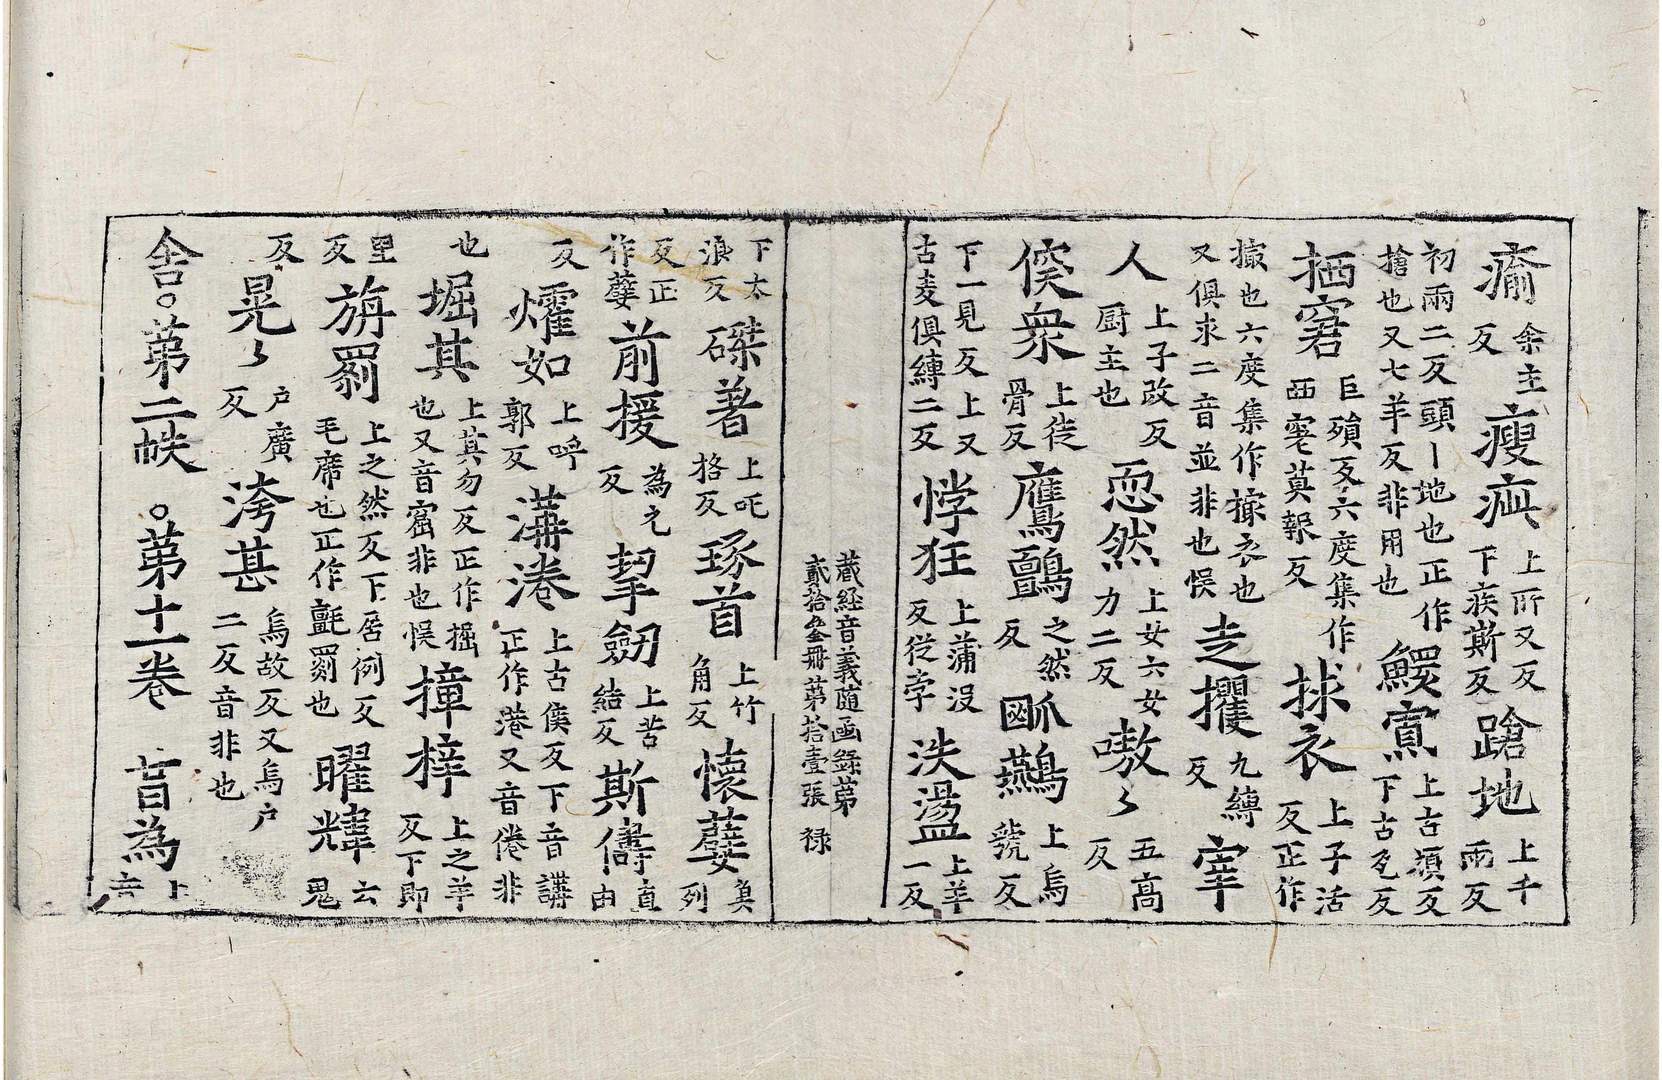 瘉余主反瘦疵上所又反下疾斯反蹌地上千兩反
初兩二反頭丨地也正作搶也又七羊反非用也鰥寡上古頑反下古瓦反
栖窘巨殞反六度集作西䆪莫報反捄衣上子活反正作
撮也六度集作㨿衣也又俱求二音並非也悮走攫九縛反宰
人上子改反厨主也恧然上女六女力二反嗷〻五高反
傒衆上徒骨反鷹鸇之然反䶕鷰上烏䖈反
下一見反上又古麦俱縛二反悖狂上蒲没反從孛泆盪上羊一反
藏経音義随函錄第貳拾叄冊第拾壹張 禄
下太浪反磔著上吒格反琢首上竹角反懷孽魚列
反正作孽前援為元反挈劒上苦結反斯儔直由
反㸌如上呼郭反溝港上古侯反下音講正作港又音倦非
也堀其上其勿反正作掘也又音窟非也悮撞梓上之羊反下即
里反旃罽上之然反下居例反毛席也正作氈罽也曜煒云鬼
反晃〻户廣反洿甚烏故反又烏户二反音非也
舎。第二帙 。第十一卷 盲為上音